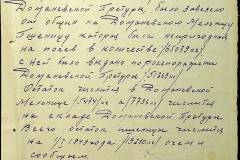 Доманевской Претуры, было завезено
от общин на Доманевскую Мельницу
Пшеницу которая была непригодна
на посев в количестве /
с неё было выдано по распоряжению
Доманевской Претуры /
Остаток числится в Доманевской
Мельнице / а / числится
на складе Доманевской Претуры
Всего остаток пшеницы числится
на 1/I 194 года / о чем и
сообщаем.